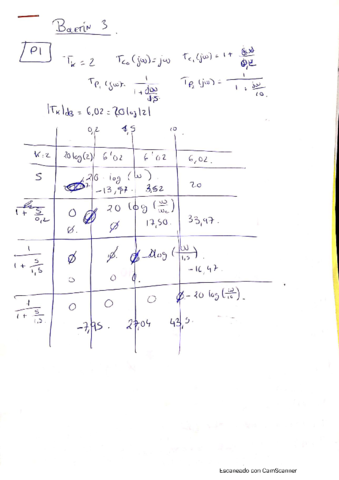 Barrin 3
P1
T_k = 2 T_c₀(jω) = jω T_c₁(jω) = 1 + jω/0,2
T_P₁(jω) = 1/(1 + jω/1,5) T_P₂(jω) = 1/(1 + jω/10)
|T_k|dB = 6,02 = 20 log|2|
0,2 1,5 10
K=2 20 log(2) 6'02 6'02 6,02
S 20 log(ω)
-13,97 3,52 20
1 + s/0,2 0 20 log(ω/0,2)
0. 17,50 33,97
1/(1 + s/1,5) 0 0. -20log(ω/1,5)
0 0 0. -16,47
1/(1 + s/10) 0 0 0 0 -20 log(ω/10)
-7,95 27,04 43,5
Escaneado con CamScanner